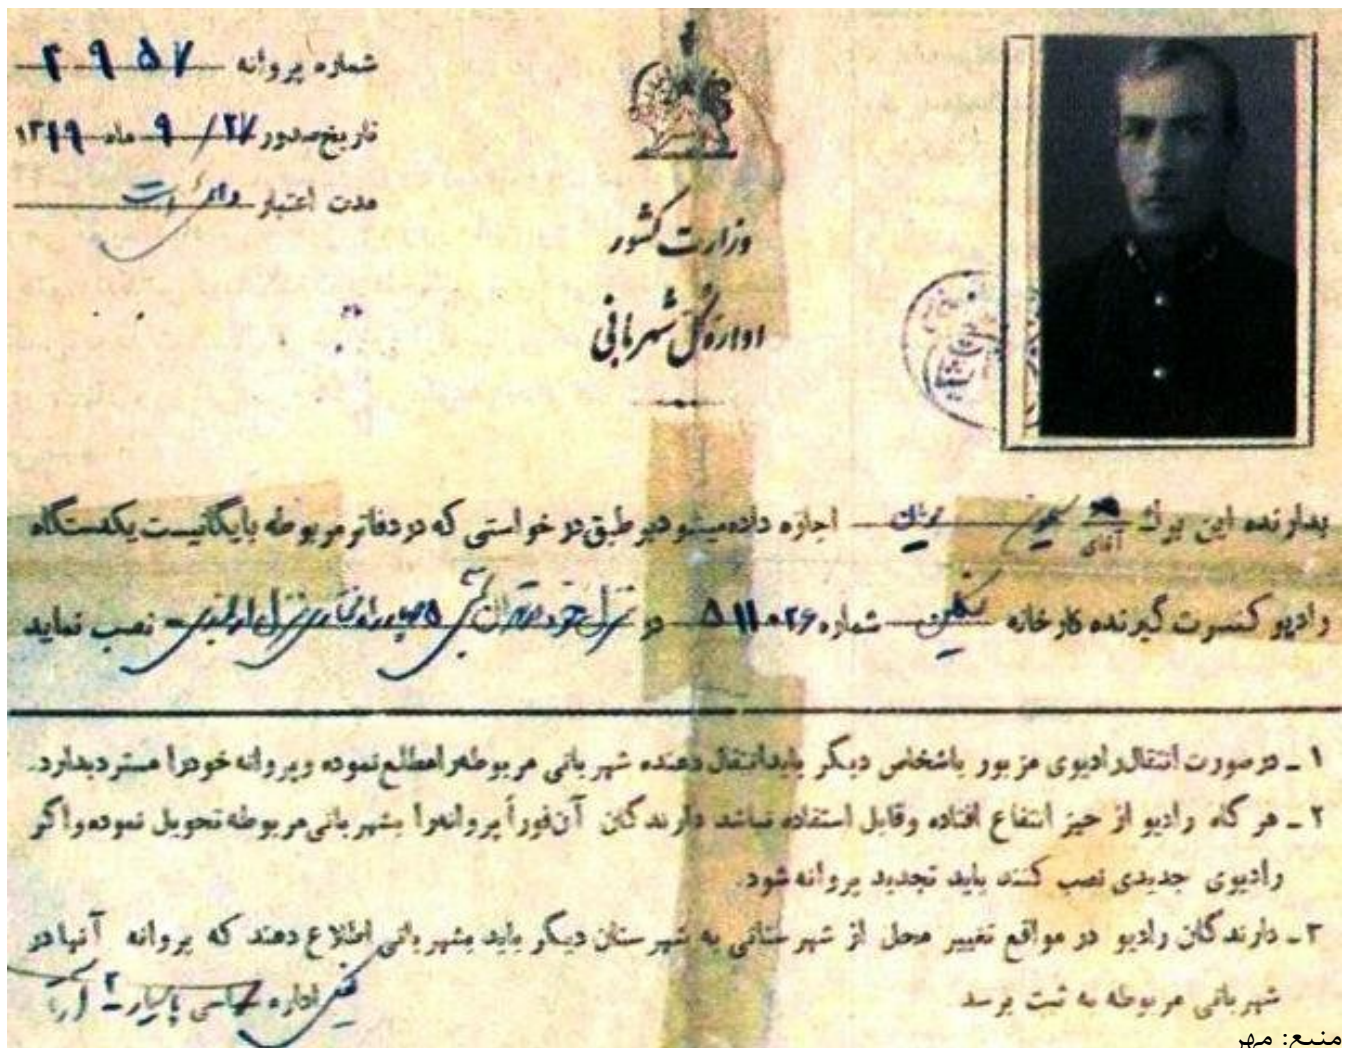 شماره پروانه ۲۹۵۷
تاریخ صدور ۲۷/ ۹ ماه ۱۳۱۹
مدت اعتبار دائم است
وزارت کشور
اداره کل شهربانی
بدارنده این برگ آقای اجازه داده میشود بر طبق درخواستی که در دفاتر مربوطه بایگانیست یکدستگاه
رادیو کنسرت گیرنده کارخانه شماره ۵۱۱۰۲۶ در منزل خود در تهران نصب نماید
۱ ـ درصورت انتقال رادیوی مزبور باشخاص دیگر بایدانتقال دهنده شهربانی مربوطه را مطلع نموده و پروانه خود را مسترد بدارد.
۲ ـ هر گاه رادیو از حیز انتفاع افتاده وقابل استفاده نباشد دارندگان آن فوراً پروانه را بشهربانی مربوطه تحویل نموده و اگر
رادیوی جدیدی نصب کنند باید تجدید پروانه شود.
۳ ـ دارندگان رادیو در مواقع تغییر محل از شهرستانی به شهرستان دیگر باید بشهربانی اطلاع دهند که پروانه آنها در
شهربانی مربوطه به ثبت برسد
اداره سیاسی پاسیار ۲
منبع: مهر